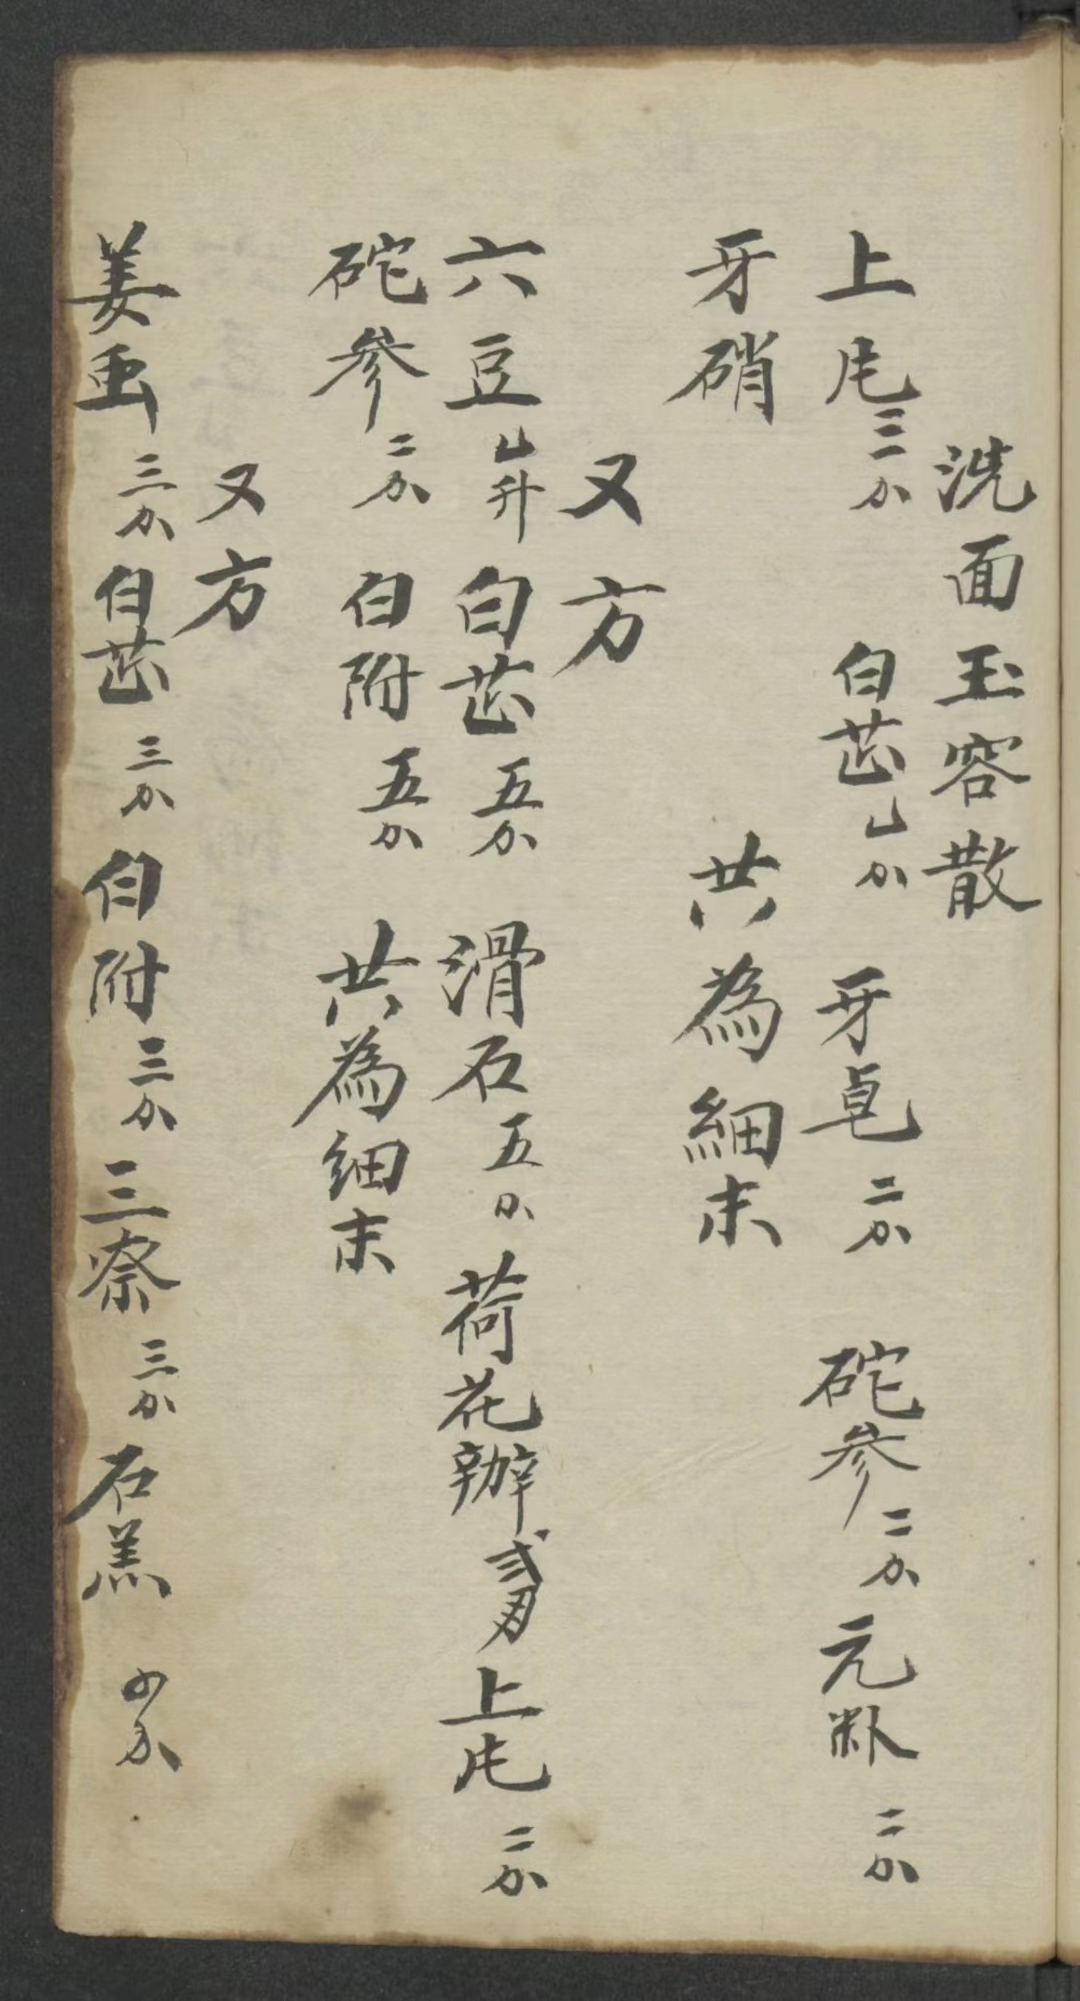 洗面玉容散
上片三分 白芷乚分 牙皂二分 砣参二分 元米二分
牙硝 共為細末
又方
六豆乚升 白芷五分 滑石五分 荷花辦弍 上片二分
砣参二分 白附五分 共為细末
又方
姜虫三分 白芷三分 白附三分 三柰三分 石羔分